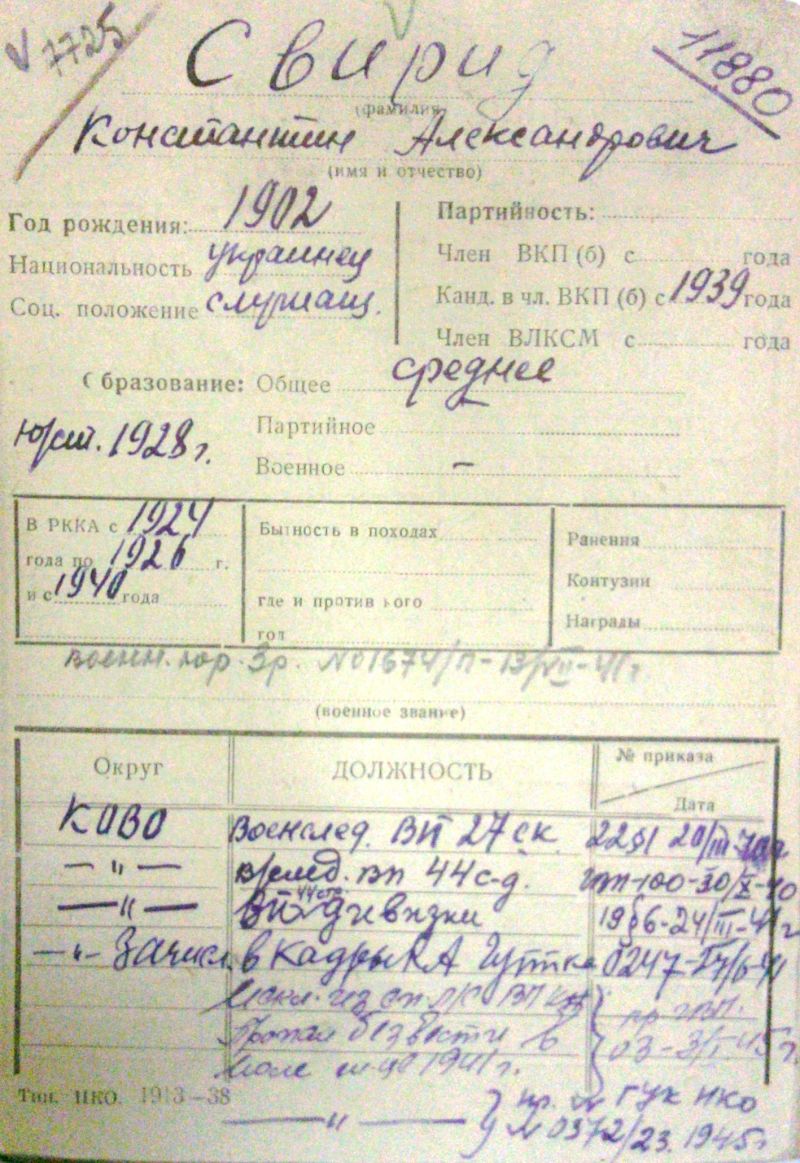 7725
11880
Свирид
(фамилия)
Константин Александрович
(имя и отчество)
Год рождения: 1902
Национальность украинец
Соц. положение служащ.
Партийность:
Член ВКП (б) с года
Канд. в чл. ВКП (б) с 1939 года
Член ВЛКСМ с года
Образование: Общее среднее
Юрид. 1928 г.
Партийное –
Военное –
В РККА с 1924
года по 1926 г.
и с 1940 года
Бытность в походах
где и против кого
год
Ранения
Контузии
Награды
военн. юр. 3 р. № 01674/п-13/VII-41 г.
(военное звание)
Округ ДОЛЖНОСТЬ № приказа
Дата
КОВО Военслед. ВП 27 ск.
— " — в/след. ВП 44 с-д.
— " — ВП 44 дивизии
— " — Зачисл. в кадры КА
Искл. из сп.
Пропал без вести в
июле м-це 1941 г.
Тип. НКО. 1913—38
— " — пр. ГУК НКО
№ 0372/23. 1945 г.